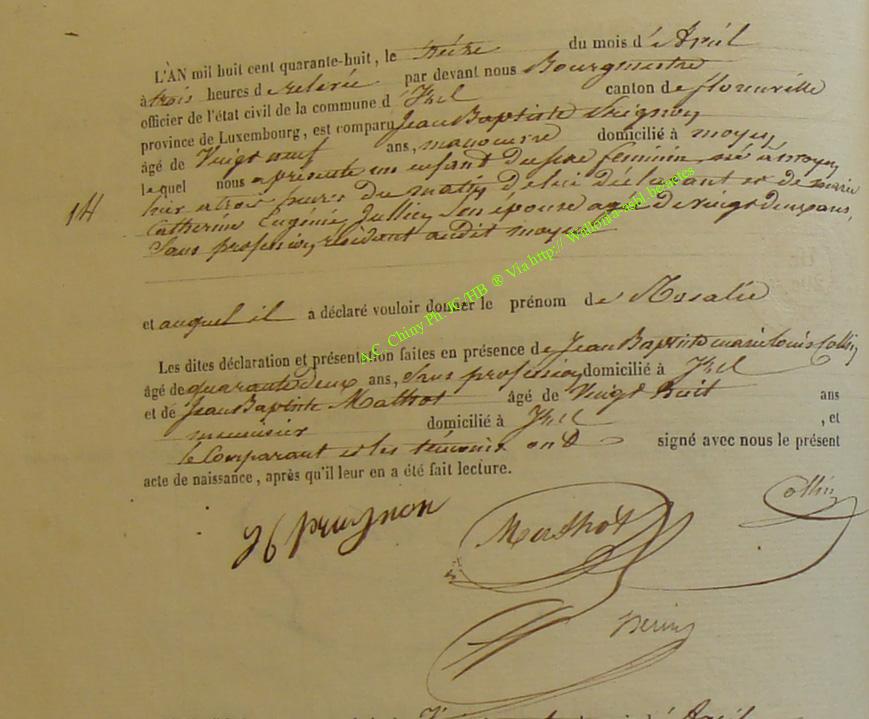 L'AN mil huit cent quarante-huit, le treize du mois d'Avril
à trois heures de relevée par devant nous Bourgmestre
officier de l'état civil de la commune d'Izel canton de florenville
province de Luxembourg, est comparu Jean Baptiste
âgé de Vingt neuf ans, manoeuvre domicilié à moyen
lequel nous a présenté un enfant du sexe féminin, né à moyen
hier a trois heures du matin de lui déclarant et de marie
14
Catherine Eugénie Jullien son épouse agée de vingt deux ans,
Sans profession, résidant audit moyen
et auquel il a déclaré vouloir donner le prénom de Rosalie
Les dites déclaration et présentation faites en présence de Jean Baptiste marie louis Collin
âgé de quarante deux ans, Sans profession domicilié à Izel
et de Jean Baptiste Mathot âgé de Vingt huit ans
menuisier domicilié à Izel , et
le Comparant et les témoins ont signé avec nous le présent
acte de naissance, après qu'il leur en a été fait lecture.
Collin
Mathot
A.C. Chiny Ph. JG/HB ® Via http://